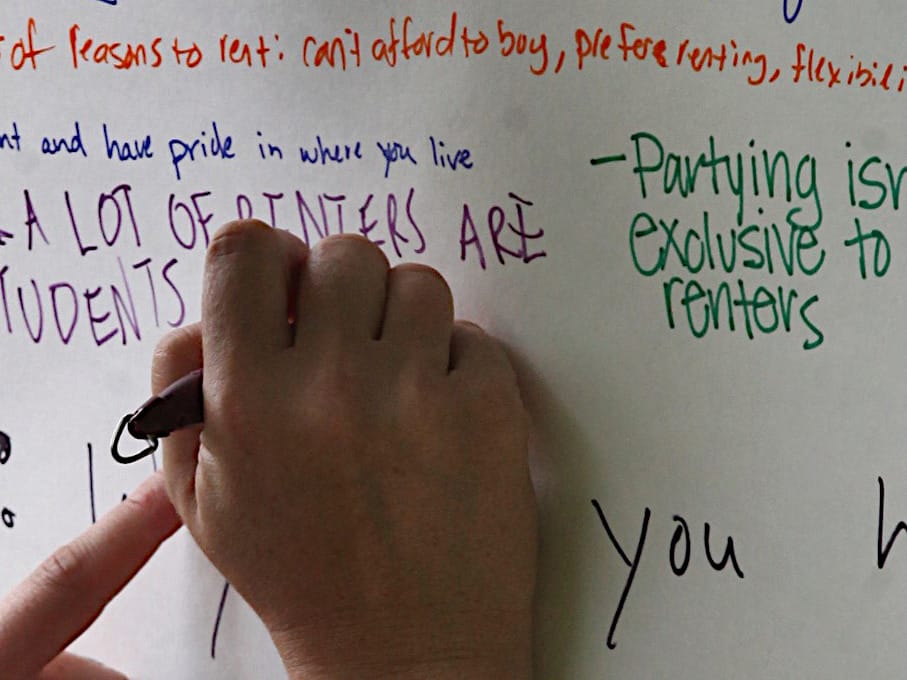 of reasons to rent: can't afford to buy, prefere renting, flexibili
nt and have pride in where you live
- A LOT OF RENTERS ARE
TUDENTS
- Partying isn
exclusive to
renters
you h